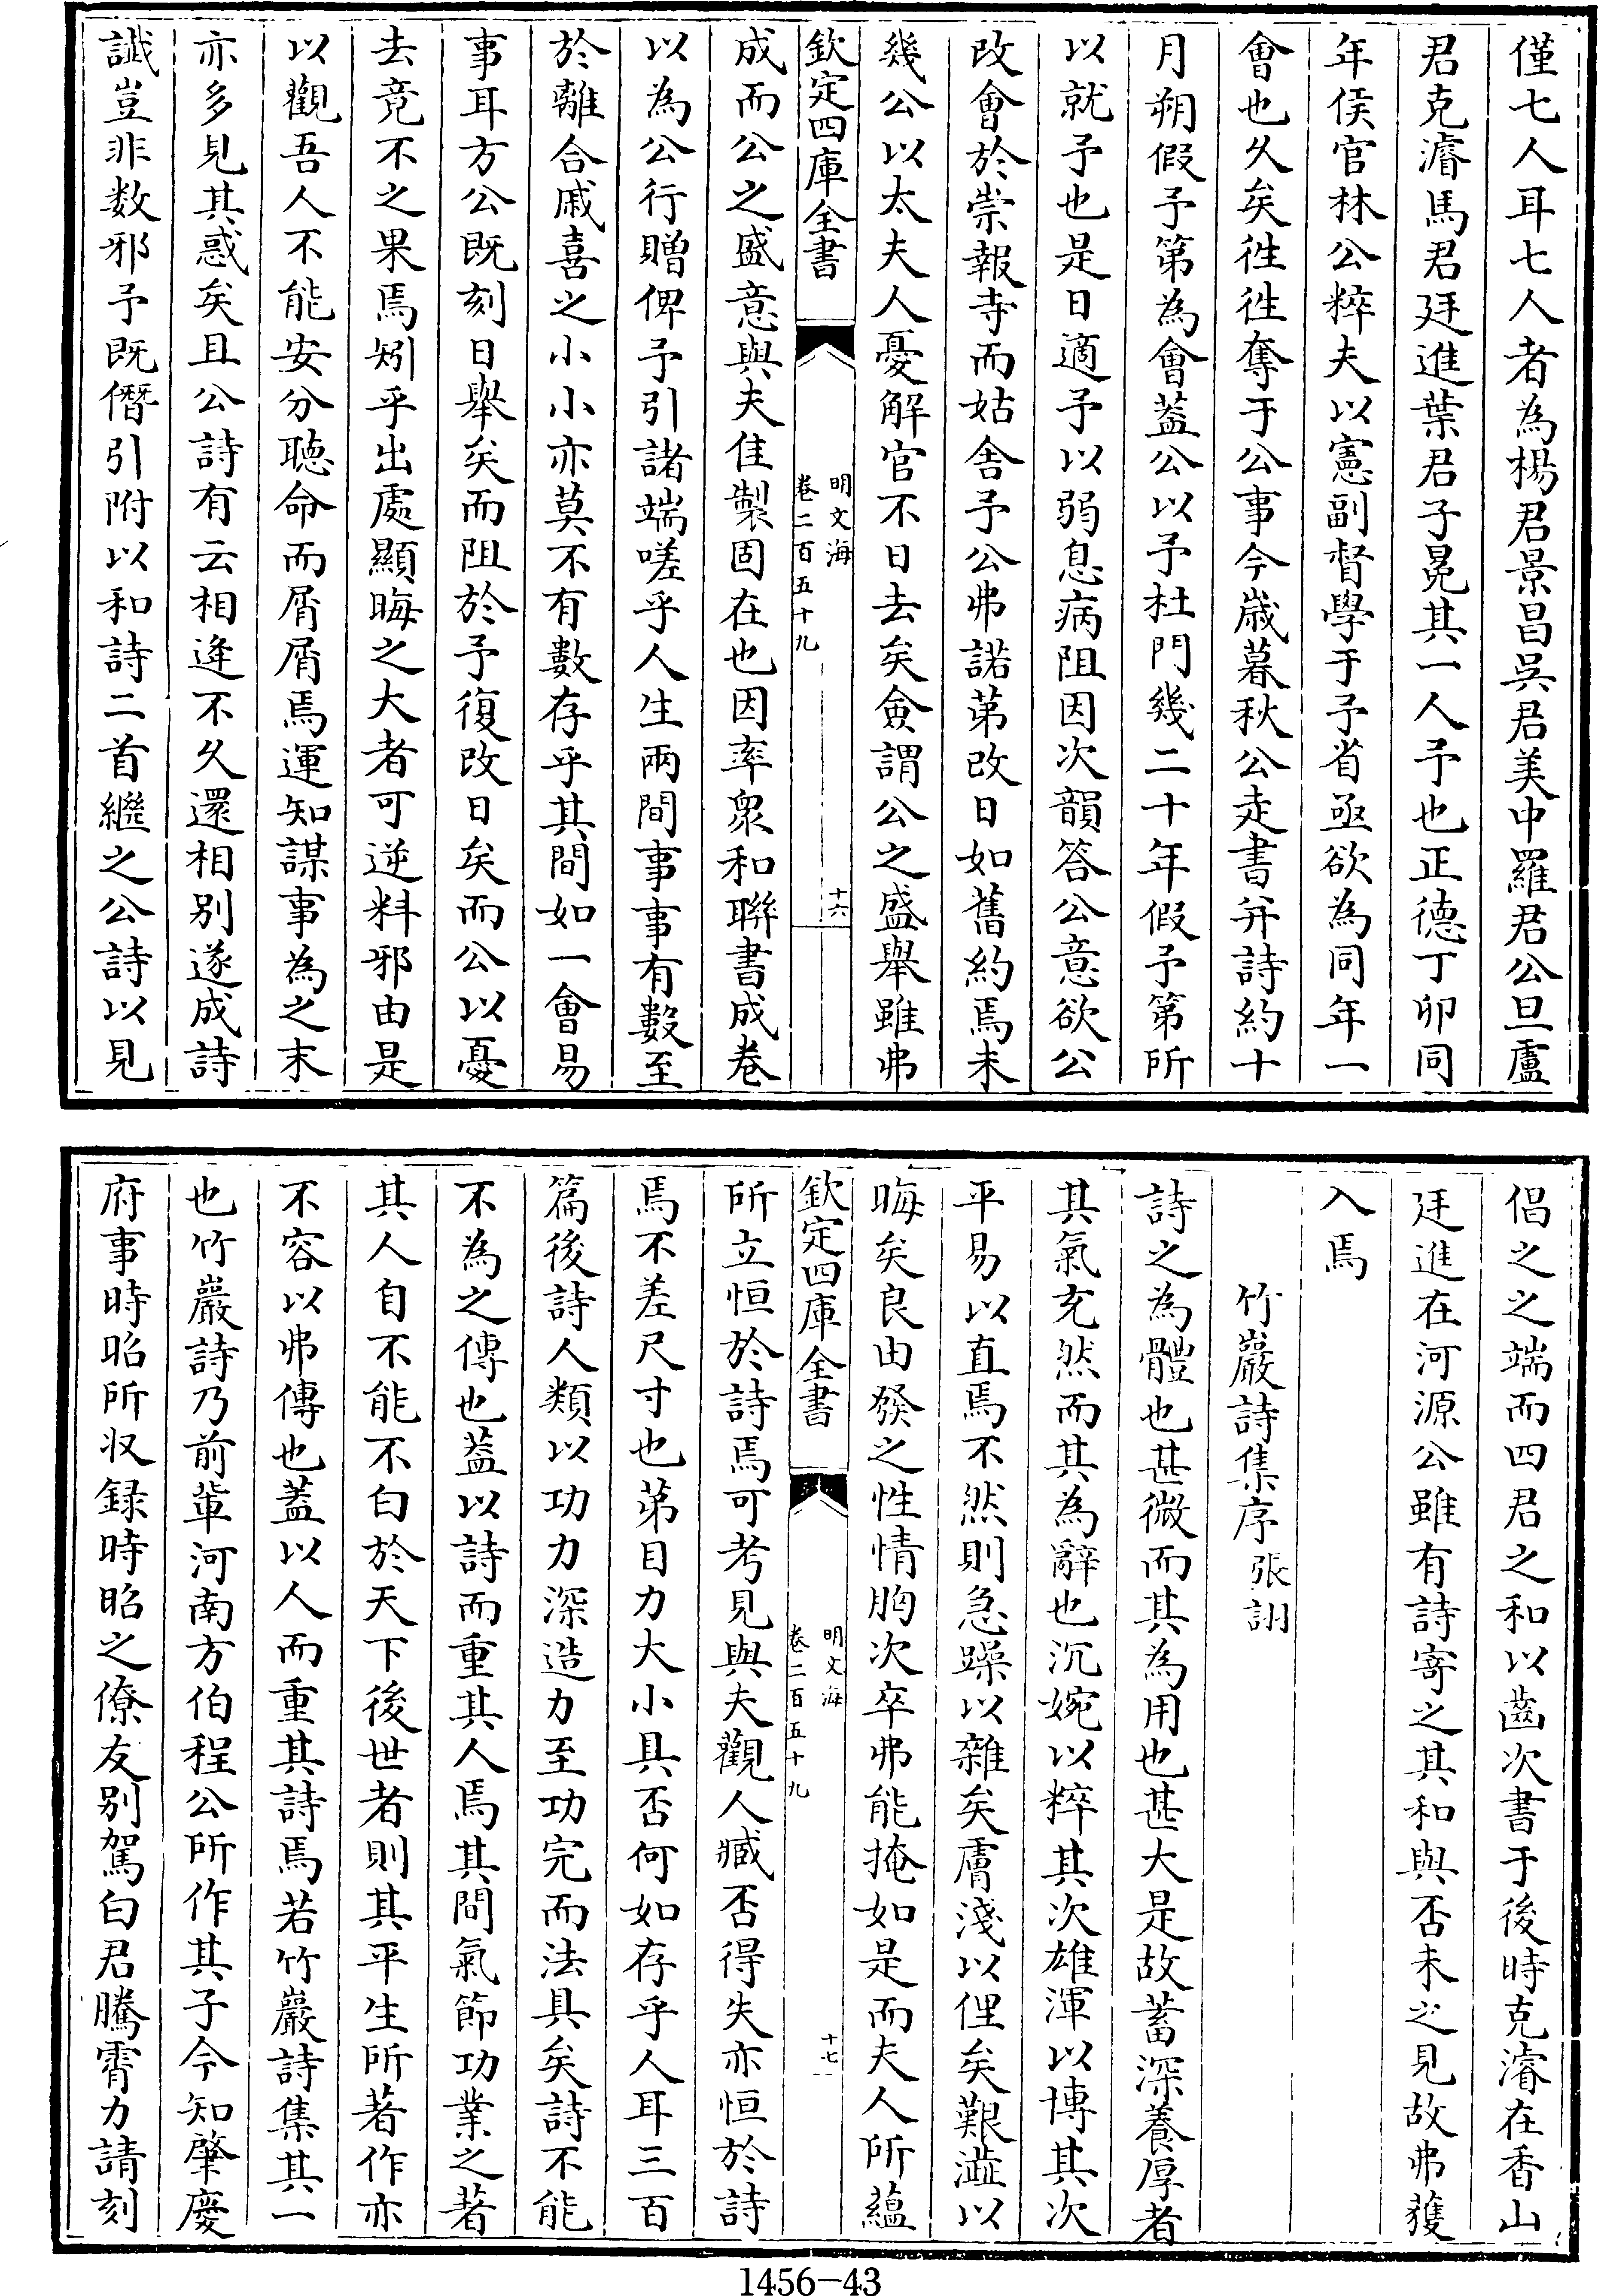 僅七人耳七人者為楊君景昌吳君美中羅君公旦盧
君克濬馬君廷進葉君子冕其一人予也正德丁卯同
年侯官林公粹夫以憲副督學于予省亟欲為同年一
會也久矣徃徃奪于公事今歳暮秋公走書并詩約十
月朔假予第為會蓋公以予杜門幾二十年假予第所
以就予也是日適予以弱息病阻因次韻答公意欲公
改會於崇報寺而姑舍予公弗諾第改日如舊約焉未
幾公以太夫人憂解官不日去矣僉謂公之盛舉雖弗
欽定四庫全書
明文海
卷二百五十九
十六
成而公之盛意與夫佳製固在也因率衆和聯書成卷
以為公行贈俾予引諸端嗟乎人生兩間事事有數至
於離合戚喜之小小亦莫不有數存乎其間如一會易
事耳方公既刻日舉矣而阻於予復改日矣而公以憂
去竟不之果焉矧乎出處顯晦之大者可逆料邪由是
以觀吾人不能安分聽命而屑屑焉運知謀事為之末
亦多見其惑矣且公詩有云相逢不久還相别遂成詩
讖豈非数邪予既僭引附以和詩二首繼之公詩以見
倡之之端而四君之和以齒次書于後時克濬在香山
廷進在河源公雖有詩寄之其和與否未之見故弗獲
入焉
竹巖詩集序 張詡
詩之為體也甚微而其為用也甚大是故蓄深養厚者
其氣充然而其為辭也沉婉以粹其次雄渾以博其次
平易以直焉不然則急躁以雜矣膚淺以俚矣艱澁以
晦矣良由發之性情胸次卒弗能掩如是而夫人所蘊
欽定四庫全書
明文海
卷二百五十九
十七
所立恒於詩焉可考見與夫觀人臧否得失亦恒於詩
焉不差尺寸也第目力大小具否何如存乎人耳三百
篇後詩人類以功力深造力至功完而法具矣詩不能
不為之傳也蓋以詩而重其人焉其間氣節功業之著
其人自不能不白於天下後世者則其平生所著作亦
不容以弗傳也蓋以人而重其詩焉若竹巖詩集其一
也竹巖詩乃前軰河南方伯程公所作其子今知肇慶
府事時昭所収録時昭之僚友别駕白君騰霄力請刻
1456-43